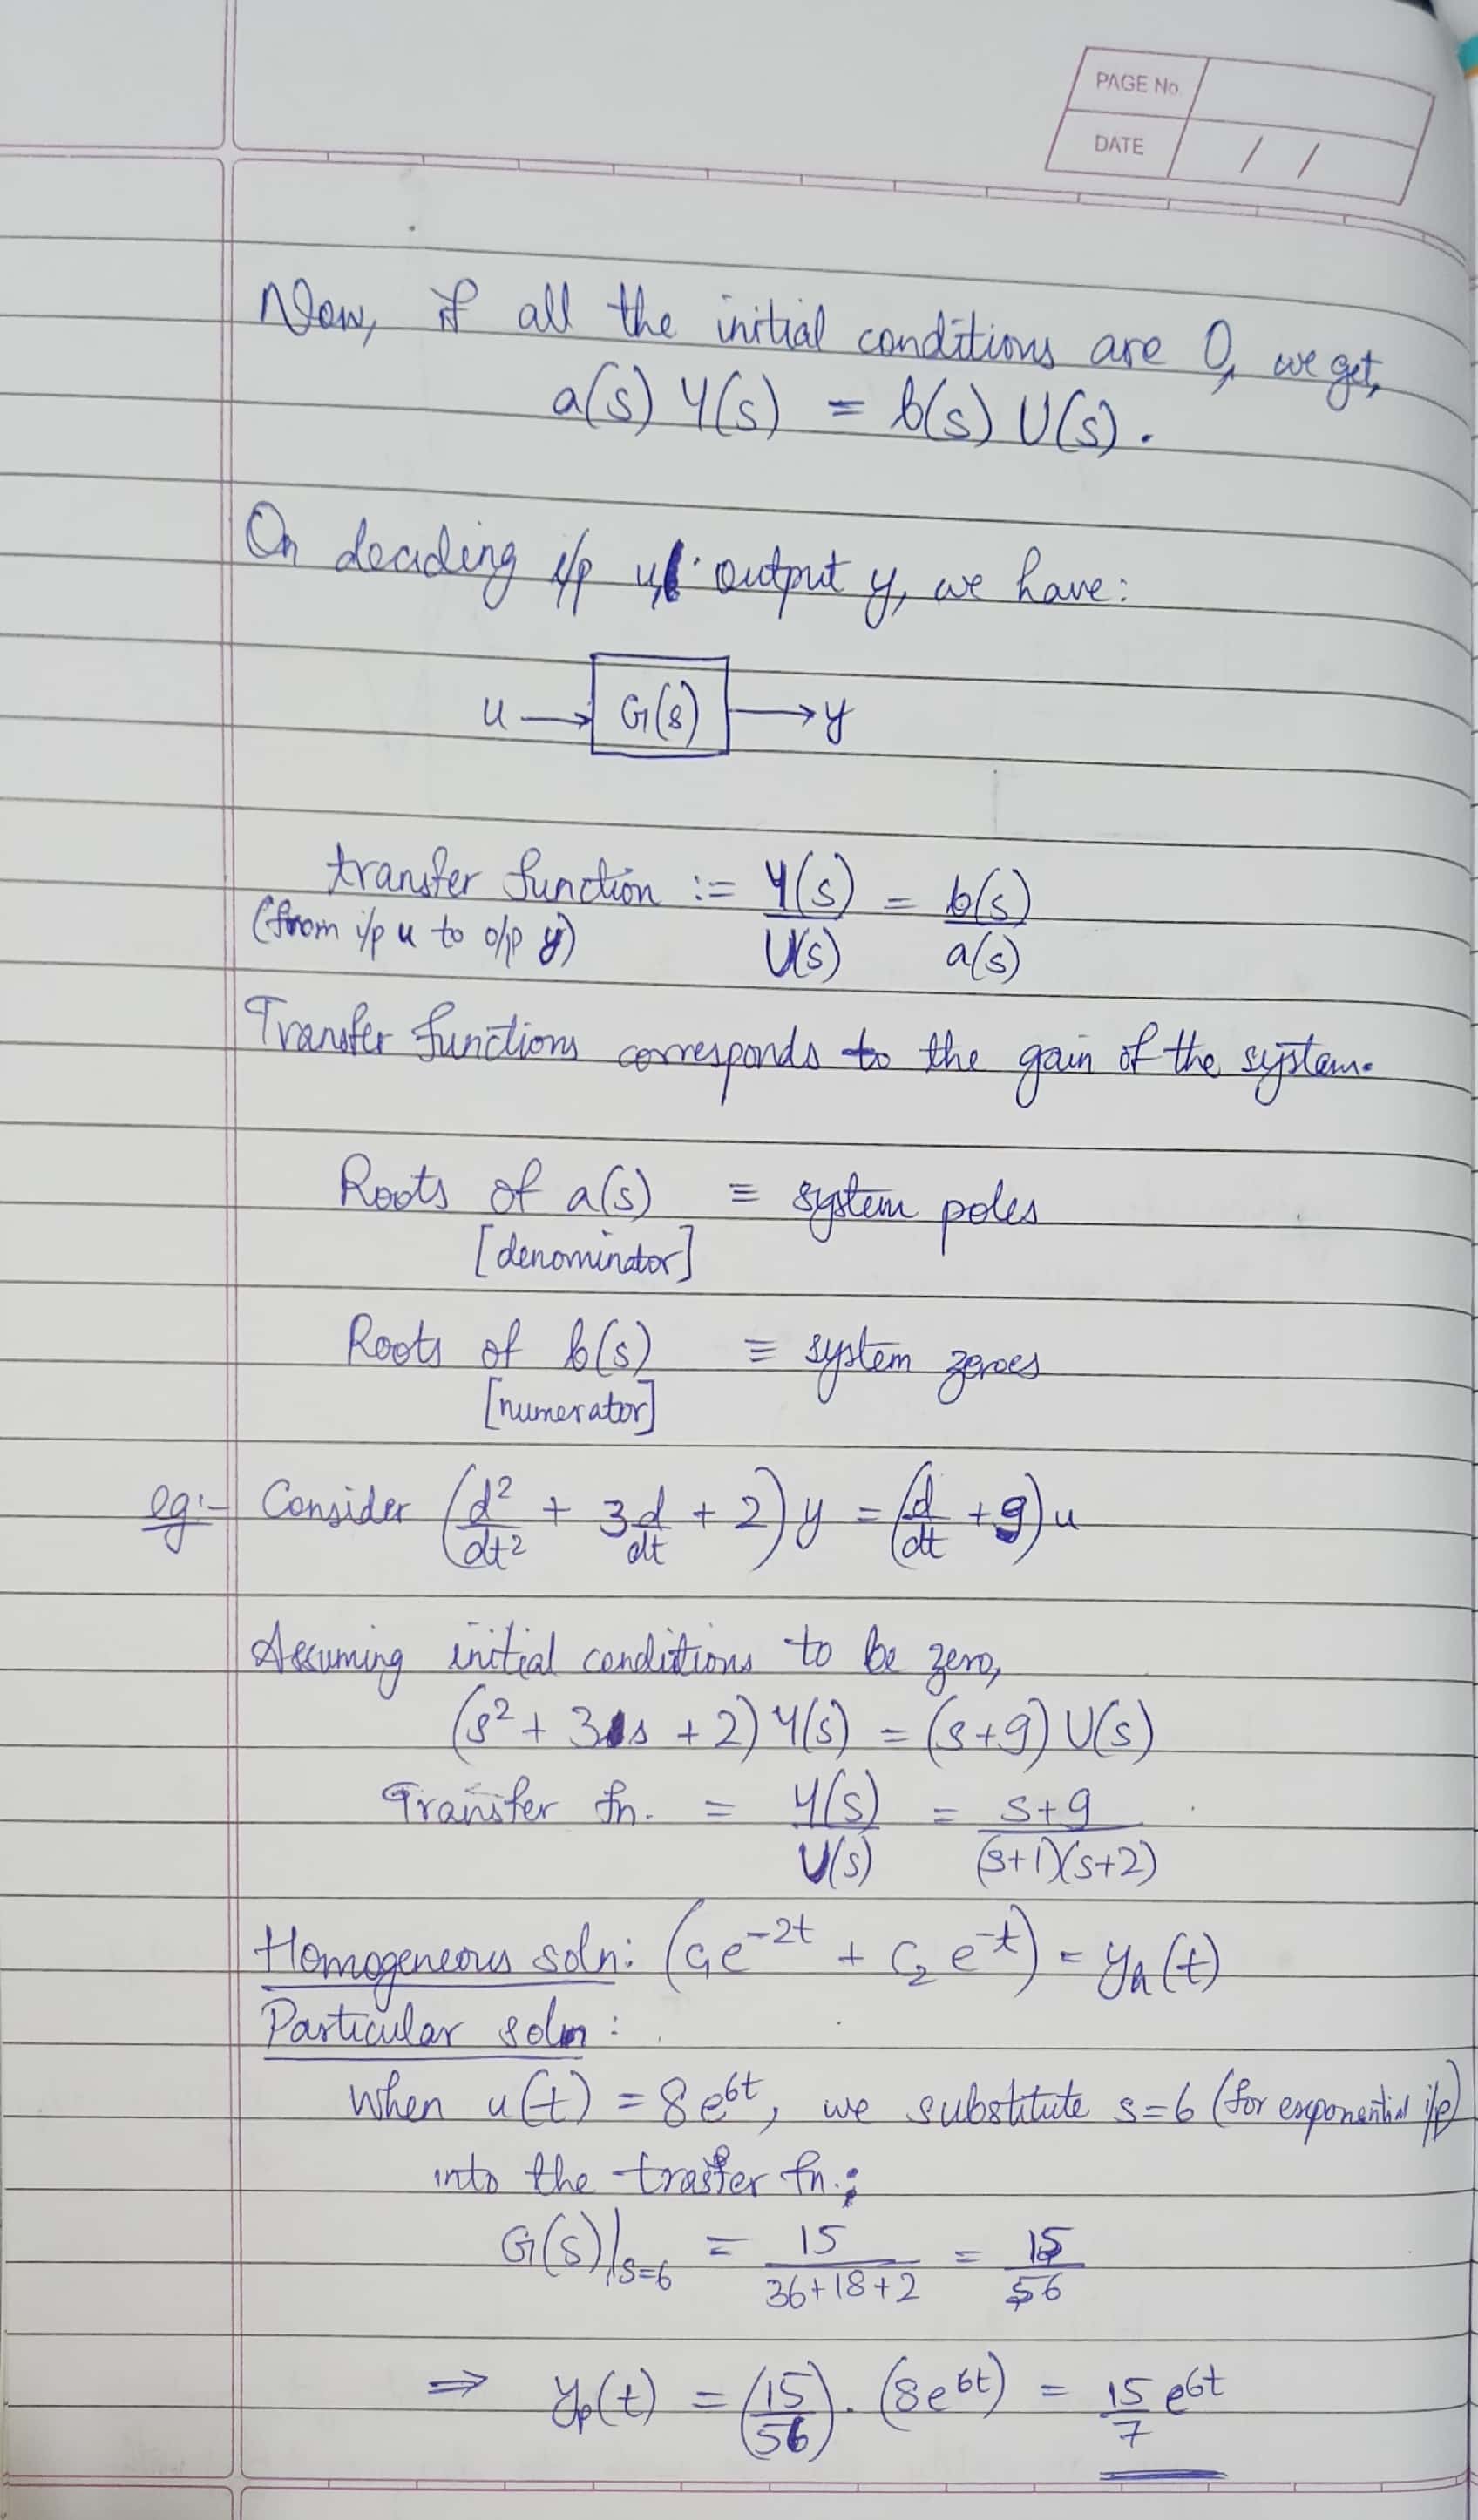 PAGE No
DATE / /
Now, if all the initial conditions are 0, we get,
a(s) Y(s) = b(s) U(s).
On deciding i/p u, output y, we have:
u → G(s) → y
transfer function := Y(s)/U(s) = b(s)/a(s)
(from i/p u to o/p y)
Transfer functions corresponds to the gain of the system.
Roots of a(s) ≡ system poles
[denominator]
Roots of b(s) ≡ system zeroes
[numerator]
eg:- Consider (d²/dt² + 3d/dt + 2) y = (d/dt + 9) u
Assuming initial conditions to be zero,
(s² + 3s + 2) Y(s) = (s+9) U(s)
Transfer fn. = Y(s)/U(s) = s+9/(s+1)(s+2)
Homogeneous soln: (C₁e^-2t + C₂e^-t) = yₕ(t)
Particular soln:
When u(t) = 8e^6t, we substitute s=6 (for exponential i/p)
into the trasfer fn.;
G(s)|s=6 = 15/36+18+2 = 15/56
⇒ yₚ(t) = (15/56). (8e^6t) = 15/7 e^6t